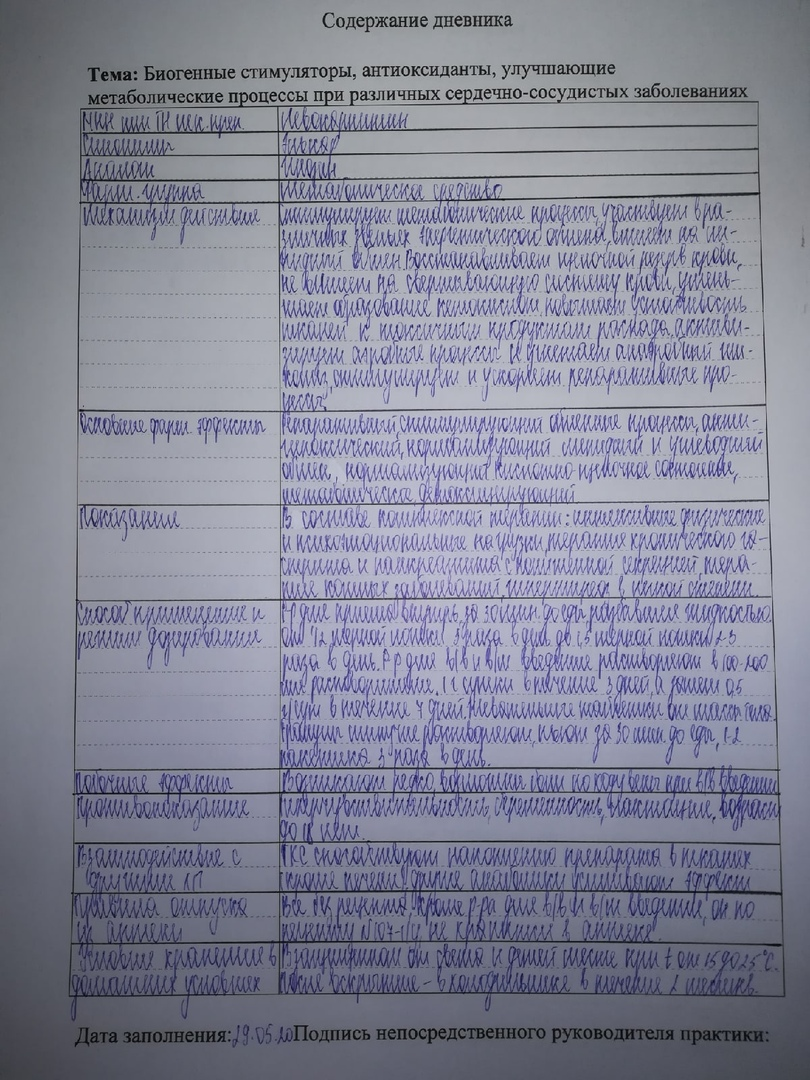 Содержание дневника
Тема: Биогенные стимуляторы, антиоксиданты, улучшающие
метаболические процессы при различных сердечно-сосудистых заболеваниях
МНН или ТН лек. преп. Левокарнитин
Синонимы Элькар
Аналоги
Фарм. группа Метаболическое средство
Механизм действия стимулирует метаболические процессы, участвует в ра-
зличных звеньях энергетического обмена, влияет на ли-
пидный обмен. Восстанавливает щелочной резерв крови,
не влияет на свертывающую систему крови, умень-
шает образование кетокислот, повышает устойчивость
тканей к токсичным продуктам распада, активи-
зирует аэробные процессы и угнетает анаэробный гли-
колиз, стимулирует и ускоряет репаративные про-
цессы.
Основные фарм. эффекты Репаративный, стимулирующий обменные процессы, анти-
гипоксический, нормализующий липидный и углеводный
обмен, нормализующий кислотно-щелочное состояние,
метаболическое, детоксицирующий
Показания В составе комплексной терапии: интенсивные физические
и психоэмоциональные нагрузки, терапия хронического га-
стрита и панкреатита с пониженной секрецией, тера-
пия кожных заболеваний, гипертиреоз в легкой степени.
Способ применения и Р-р для приема внутрь за 30 мин до еды, разбавляя жидкостью
режим дозирования от 1/2 мерной ложки 3 раза в день до 1,5 мерной ложки 2-3
раза в день. Р-р для в/в и в/м введения растворяют в 100-200
мл растворителя, 1 г сутки в течение 3 дней, а затем 0,5
г/сут в течение 7 дней.
растворяют, пьют за 30 мин до еды, 1-2
пакетика 3 раза в день.
Побочные эффекты Возникают редко, возможны боли по ходу вены при в/в введении
Противопоказание Гиперчувствительность, беременность, лактация, возраст
до 18 лет.
Взаимодействие с ГКС способствуют накоплению препарата в тканях
другими ЛП кроме печени, другие анаболики усиливают эффект
Правила отпуска Все без рецепта, кроме р-ра для в/в и в/м введения, он по
из аптеки рецепту №107-1/у, не хранится в аптеке.
Условие хранение в В защищенном от света и детей месте при t от 15 до 25°C.
домашних условиях После вскрытия - в холодильнике в течение 2 месяцев.
Дата заполнения: 29.05.20 Подпись непосредственного руководителя практики: